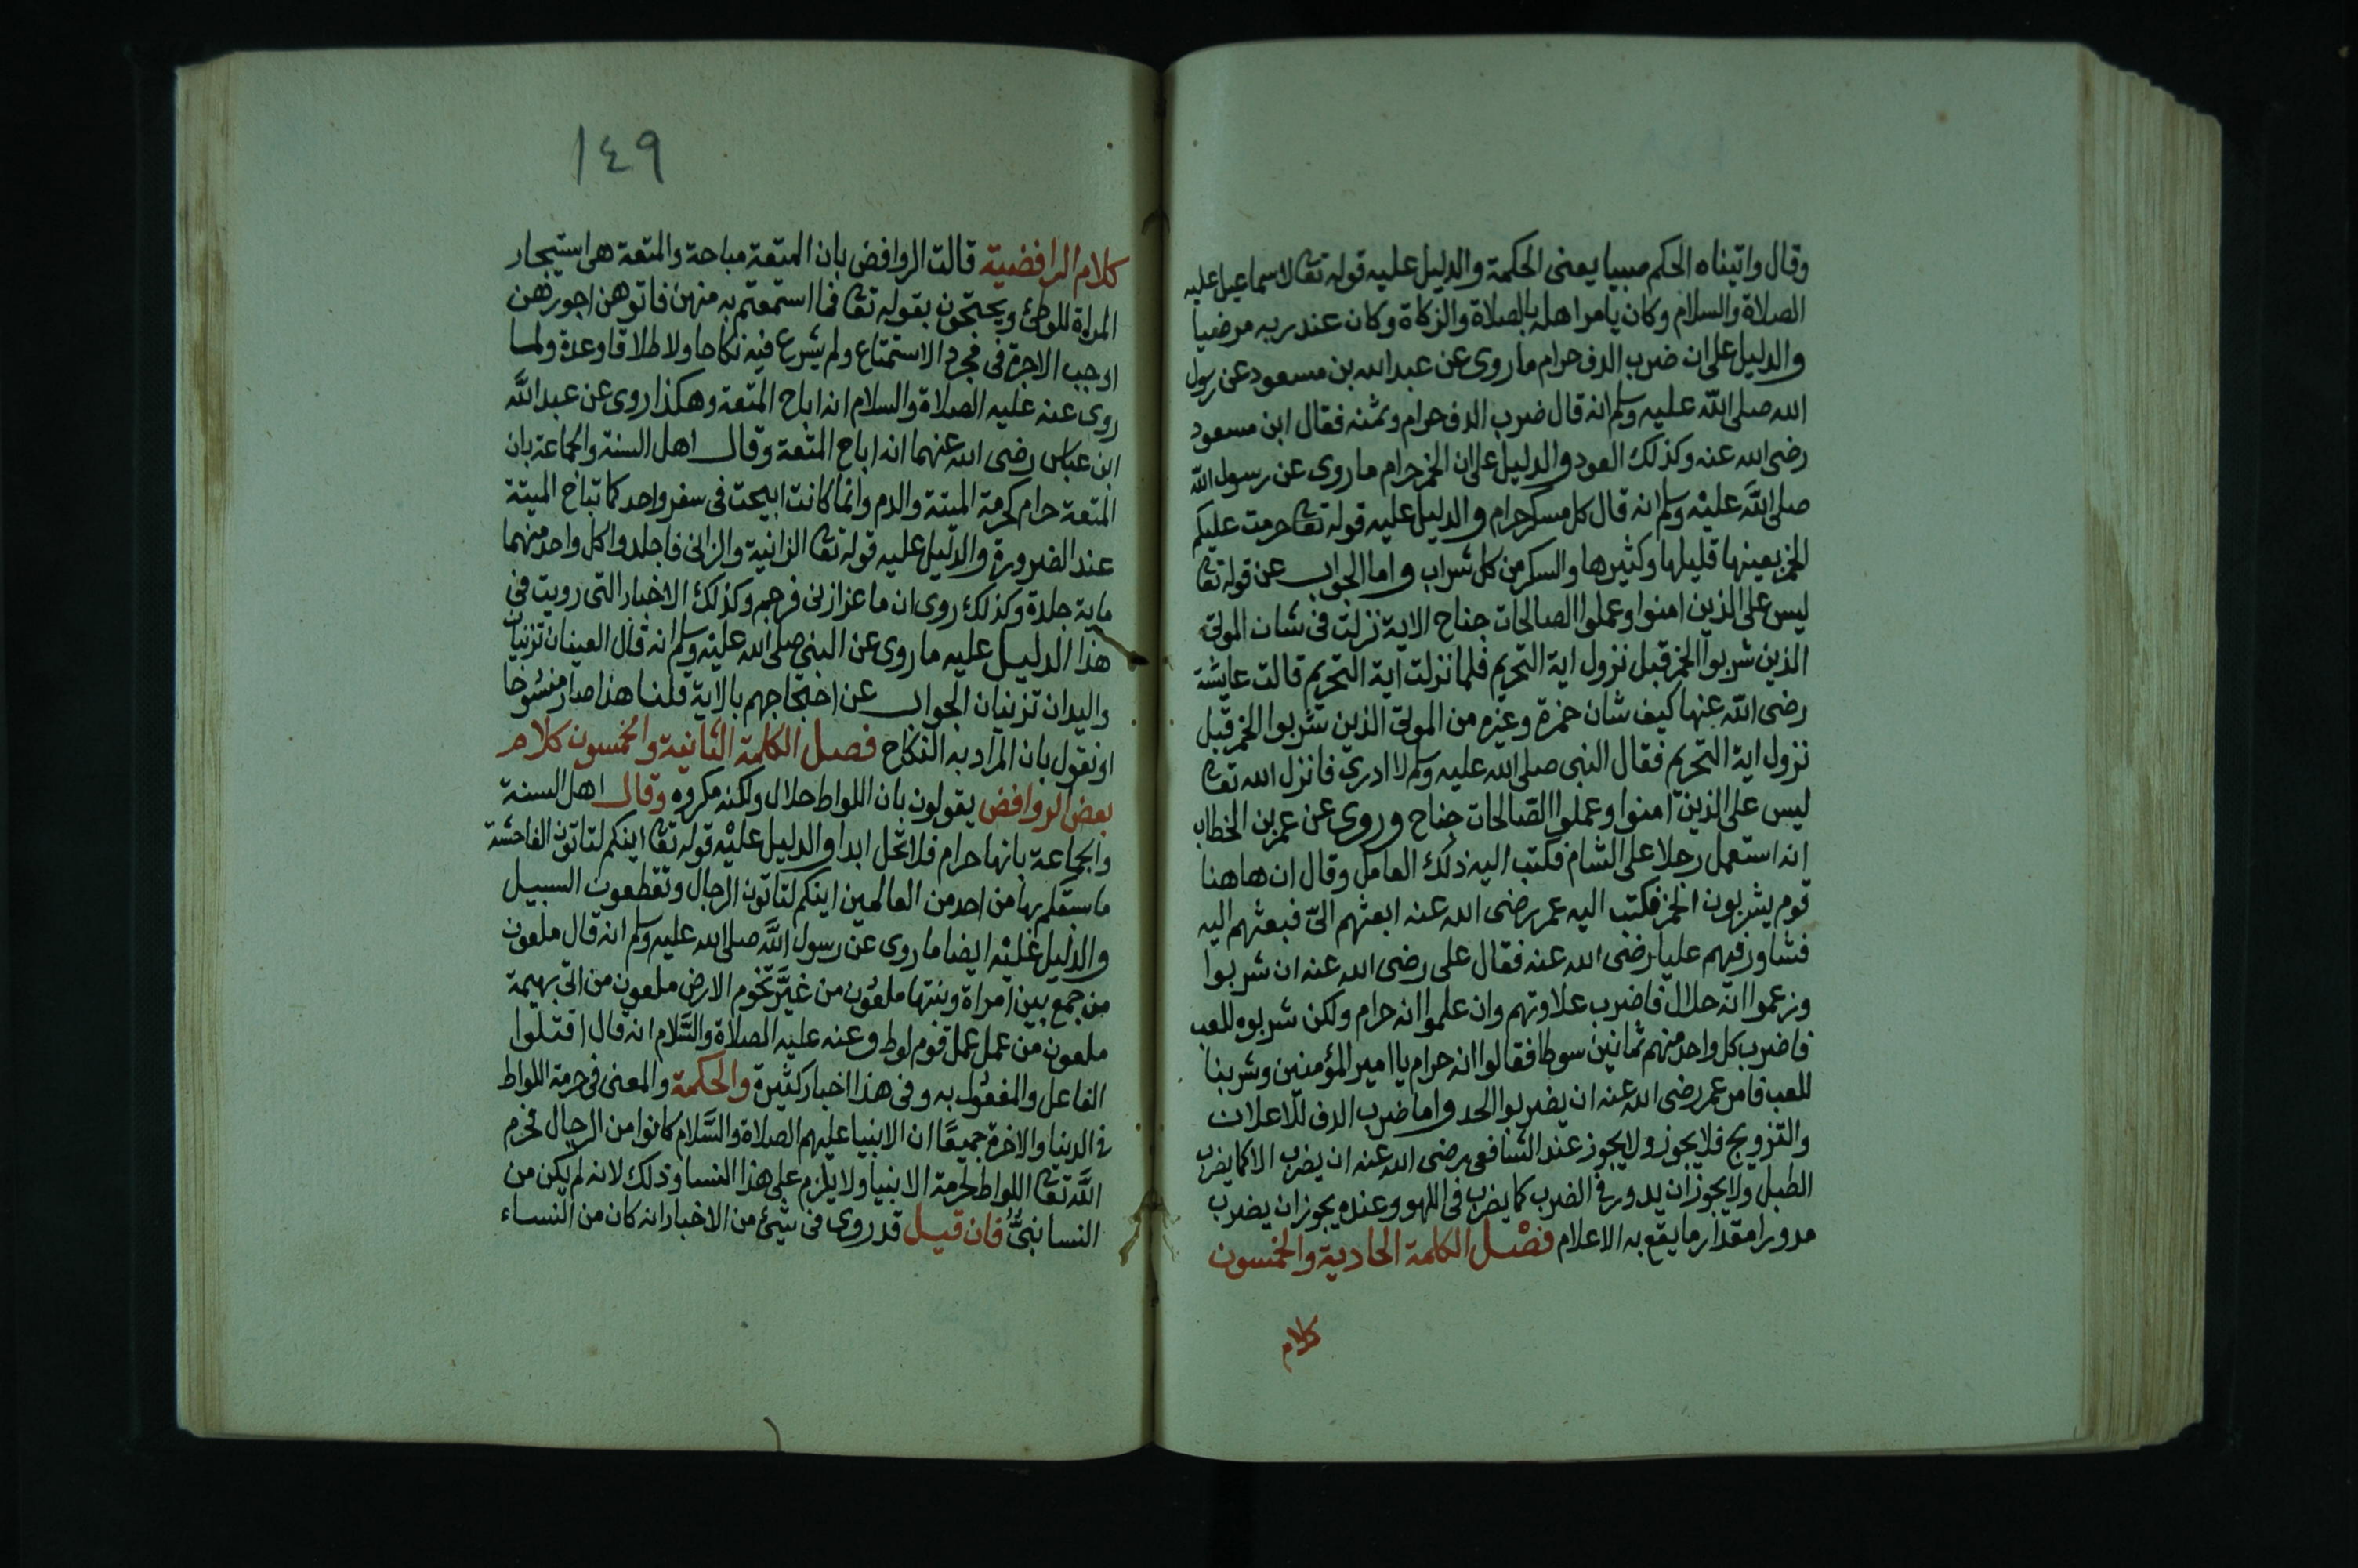 وقال واتيناه الحكم صبيا يعنى الحكمة والدليل عليه قوله تعا لاسماعيل عليه
الصلاة والسلام وكان يامر اهله بالصلاة والزكاة وكان عند ربه مرضيا
والدليل على ان ضرب الدف حرام ما روى عن عبد الله بن مسعود عن رسول
الله صلى الله عليه وسلم انه قال ضرب الدف حرام وثمنه فقال ابن مسعود
رضى الله عنه وكذلك العود والدليل على ان الخمر حرام ما روى عن رسول الله
صلى الله عليه وسلم انه قال كل مسكر حرام والدليل عليه قوله تعا حرمت عليكم
الخمر بعينها قليلها وكثيرها والسكر من كل شراب واما الجواب عن قوله تعا
ليس على الذين امنوا وعملوا الصالحات جناح الاية نزلت فى شان الموتى
الذين شربوا الخمر قبل نزول اية التحريم فلما نزلت اية التحريم قالت عايشة
رضى الله عنها كيف شان حمزة وغيره من الموتى الذين شربوا الخمر قبل
نزول اية التحريم فقال النبى صلى الله عليه وسلم لا ادرى فانزل الله تعا
ليس على الذين امنوا وعملوا الصالحات جناح وروى عن عمر بن الخطاب
انه استعمل رجلا على الشام فكتب اليه ذلك العامل وقال ان هاهنا
قوم يشربون الخمر فكتب اليه عمر رضى الله عنه ابعثهم الىّ فبعثهم اليه
فشاور فيهم عليا رضى الله عنه فقال على رضى الله عنه ان شربوا
وزعموا انه حلال فاضرب علاوتهم وان علموا انه حرام ولكن شربوه للعب
فاضرب كل واحد منهم ثمانين سوطا فقالوا انه حرام يا امير المؤمنين وشربنا
للعب فامر عمر رضى الله عنه ان يضربوا الحد واما ضرب الدف للاعلان
والتزويج فلا يجوز ولا يجوز عند الشافعى رضى الله عنه ان يضرب الا كما يضرب
الطبل ولا يجوز ان يدور فى الضرب كما يضرب فى اللهو وعنده يجوز ان يضرب
مدورا مقدار ما يقع به الاعلام فصل الكلمة الحادية والخمسون
كلام
١٤٩
كلام الرافضية قالت الروافض بان المتعة مباحة والمتعة هى استيجار
المراة للوطئ ويحتجون بقوله تعا فما استمتعتم به منهن فاتوهن اجورهن
اوجب الاجرة فى مجرد الاستمتاع ولم يشرع فيه نكاحا ولا طلاقا وعدة ولما
روى عنه عليه الصلاة والسلام انه اباح المتعة وهكذا روى عن عبد الله
ابن عباس رضى الله عنهما انه اباح المتعة وقال اهل السنة والجماعة بان
المتعة حرام كحرمة الميتة والدم وانما كانت ابيحت فى سفر واحد كما تباح الميتة
عند الضرورة والدليل عليه قوله تعا الزانية والزانى فاجلدوا كل واحد منهما
ماية جلدة وكذلك روى ان ماعزا زنى فرجم وكذلك الاخبار التى رويت فى
هذا الدليل عليه ما روى عن النبى صلى الله عليه وسلم انه قال العينان تزنيان
واليدان تزنيان الجواب عن احتجاجهم بالاية قلنا هذا صار منسوخا
او نقول بان المراد به النكاح فصل الكلمة الثانية والخمسون كلام
بعض الروافض يقولون بان اللواط حلال ولكنه مكروه وقال اهل السنة
والجماعة بانها حرام فلا تحل ابدا والدليل عليه قوله تعا اينكم لتاتون الفاحشة
ما سبقكم بها من احد من العالمين اينكم لتاتون الرجال وتقطعون السبيل
والدليل عليه ايضا ما روى عن رسول الله صلى الله عليه وسلم انه قال ملعون
من جمع بين امراة وبنتها ملعون من غيَّر تخوم الارض ملعون من اتى بهيمة
ملعون من عمل عمل قوم لوط وعنه عليه الصلاة والسَّلام انه قال اقتلوا
الفاعل والمفعول به وفى هذا اخبار كثيرة والحكمة والمعنى فى حرمة اللواط
فى الدنيا والاخرة جميعًا ان الانبيا عليهم الصلاة والسَّلام كانوا من الرجال فحرم
الله تعا اللواط لحرمة الانبيا ولا يلزم على هذا النسا وذلك لانه لم يكن من
النسا نبىٌّ فان قيل قد روى فى شيئ من الاخبار انه كان من النساء